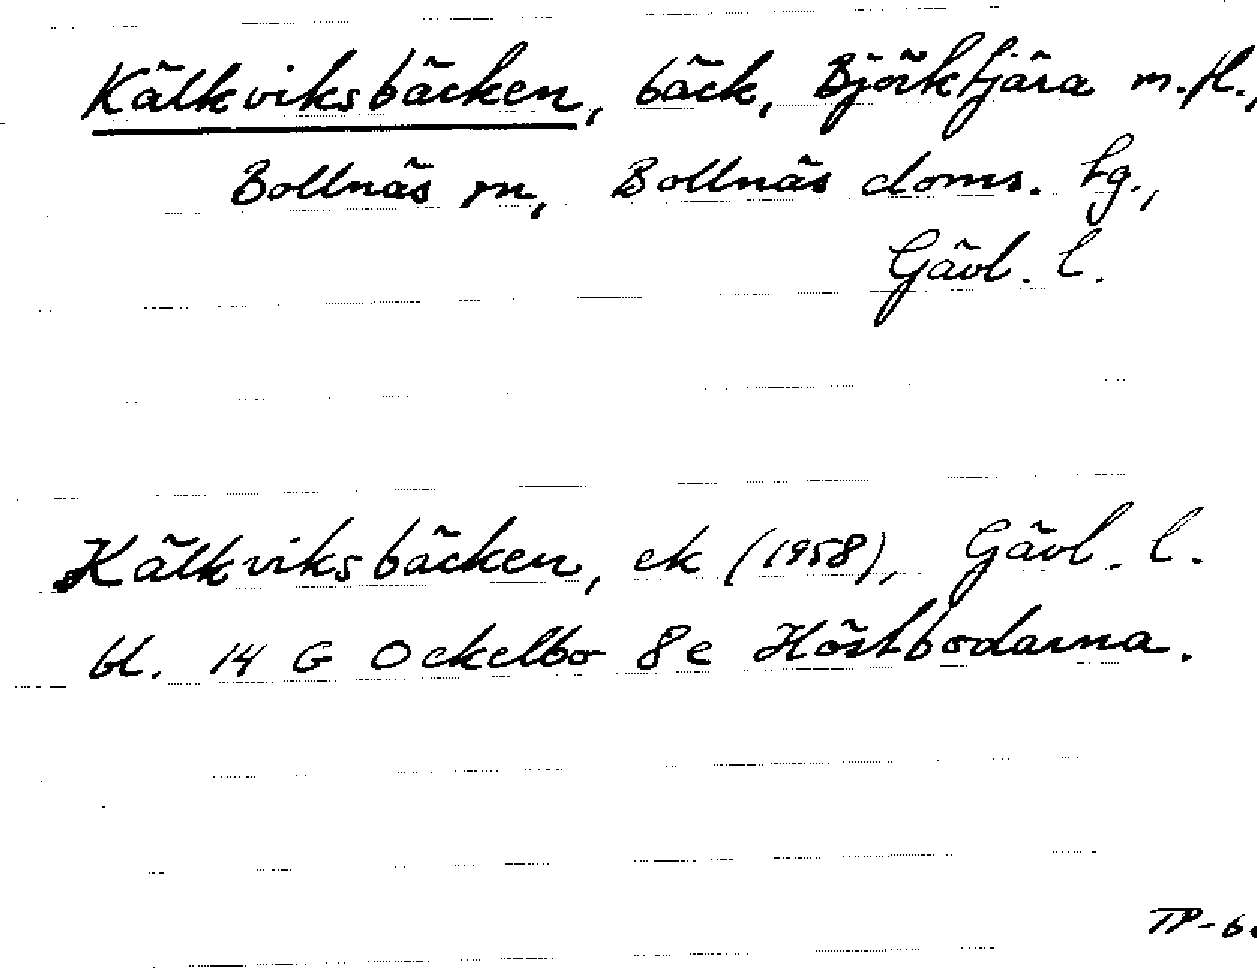 Kälkviksbäcken, bäck, Björktjära m.fl.,
Bollnäs sn, Bollnäs doms. hg.,
Gävl. l.
Kälkviksbäcken, ek (1958), Gävl. l.
bl. 14 G Ockelbo 8e Höstbodarna.
TP-6